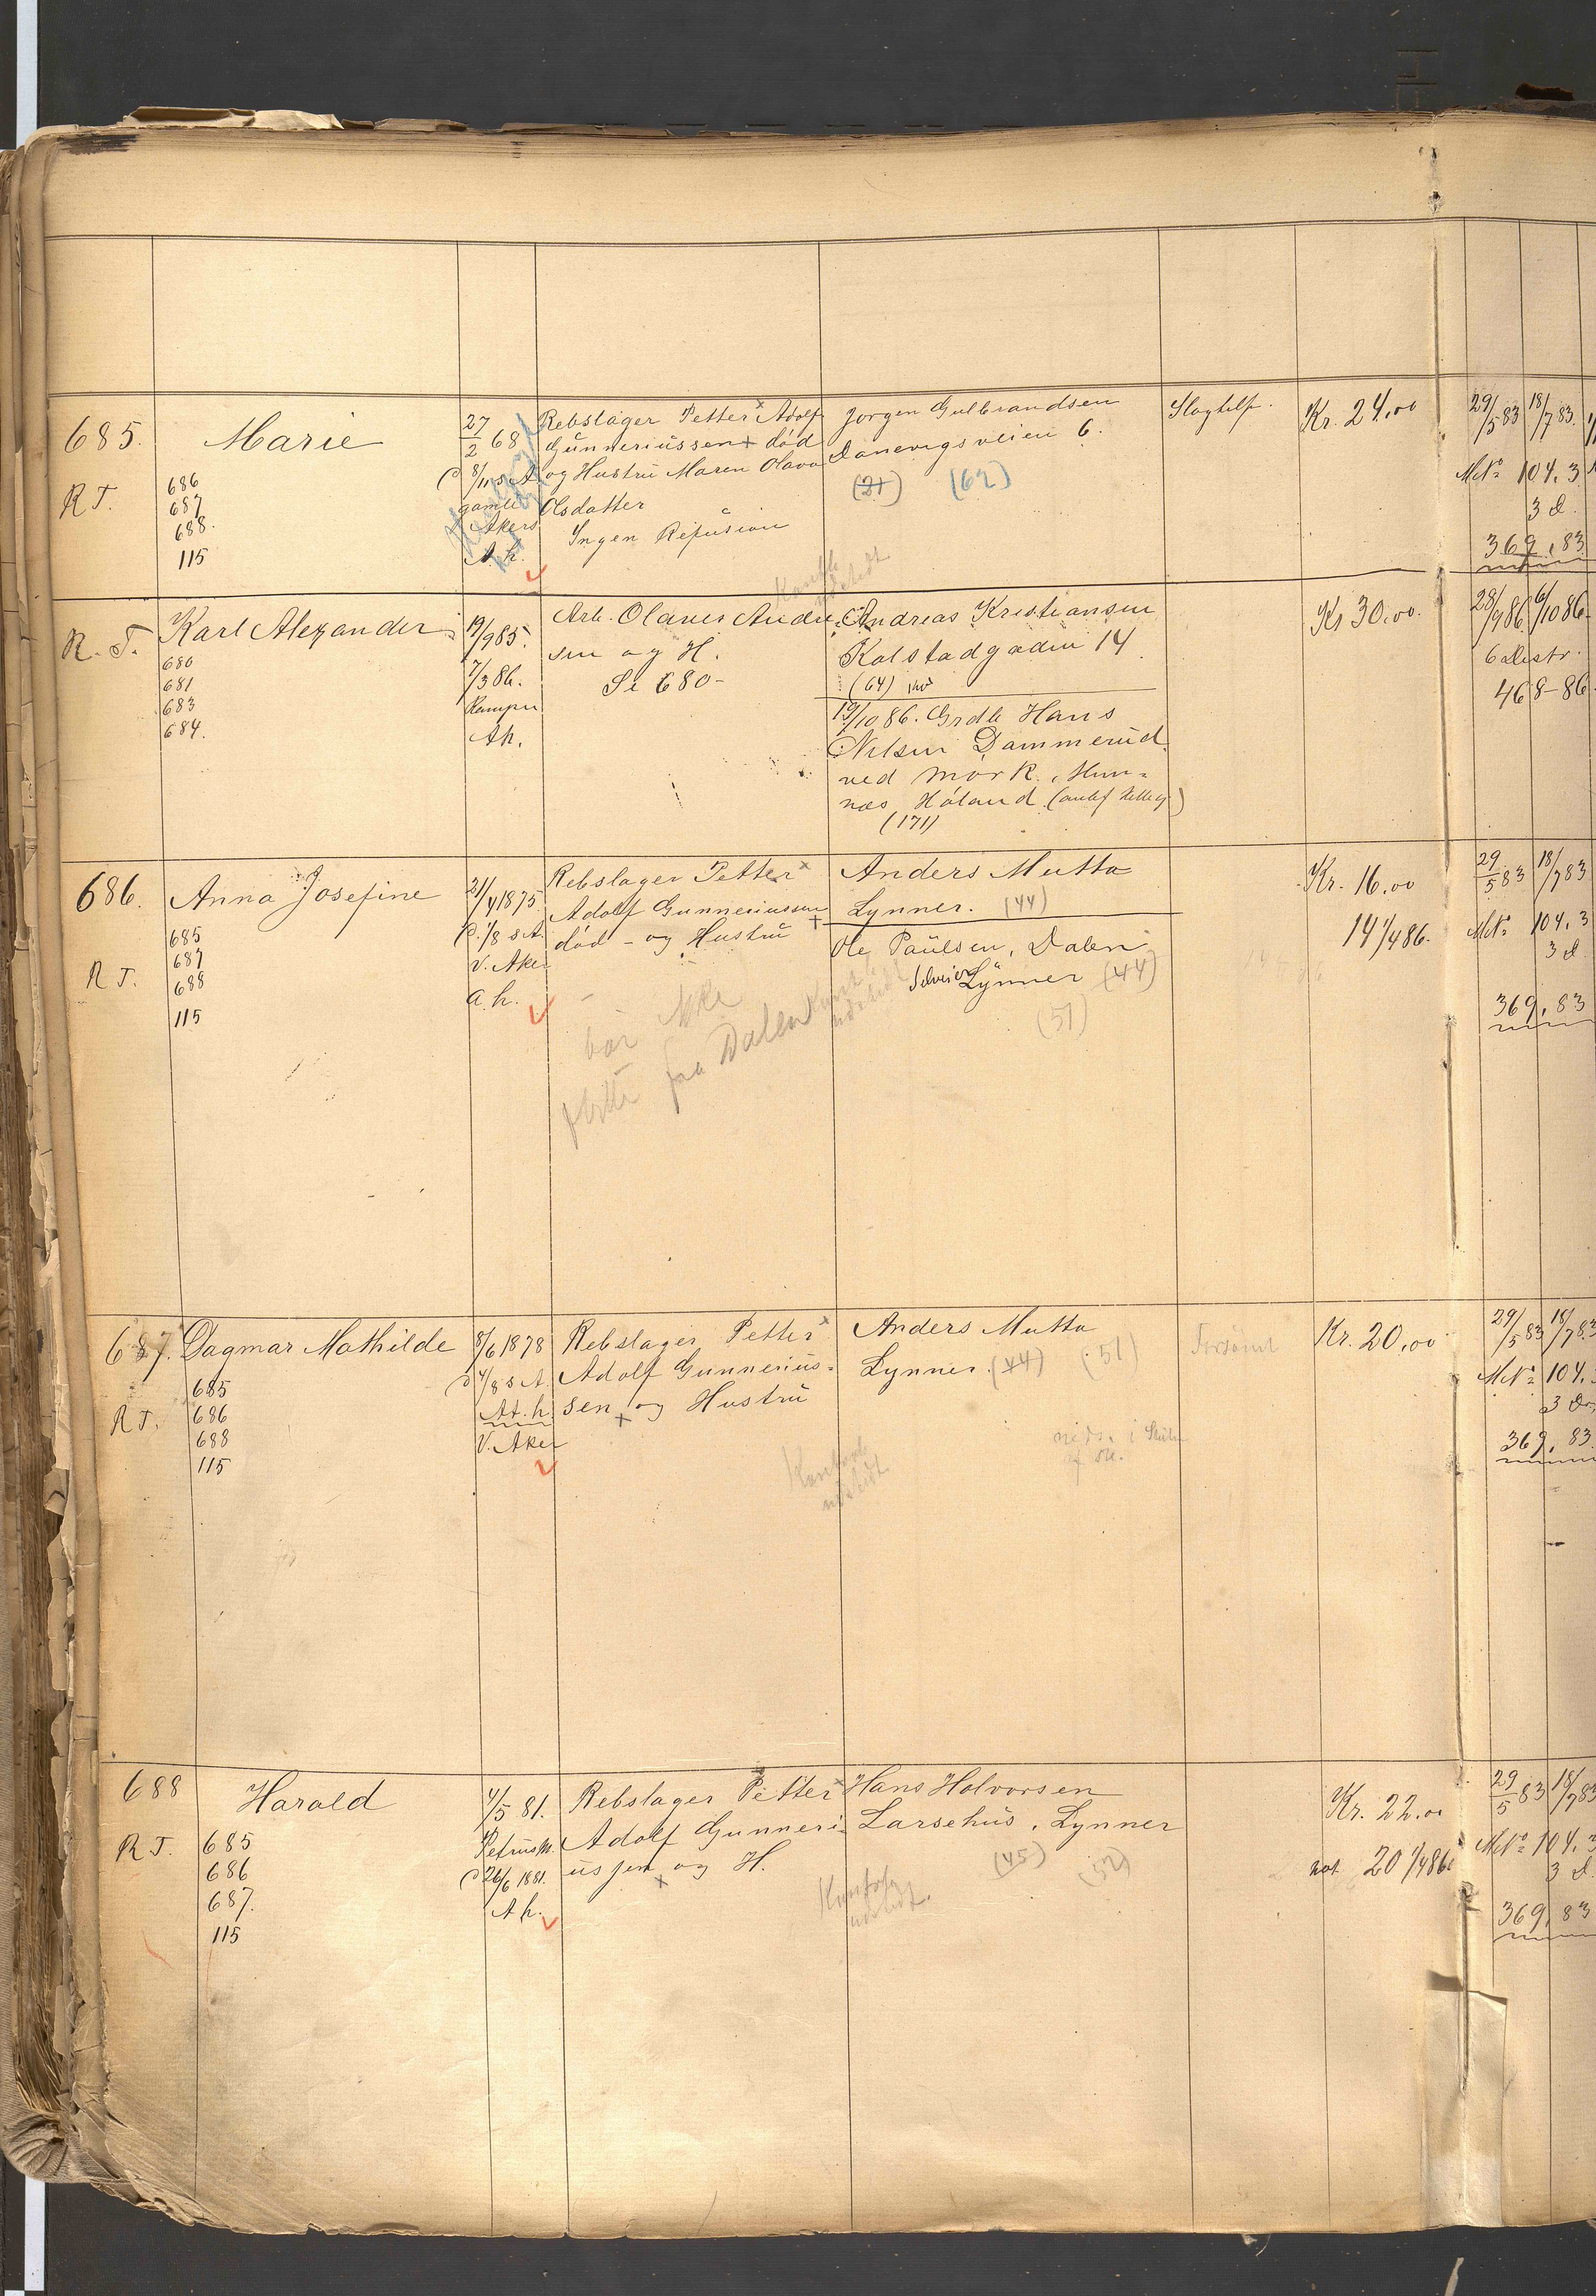 685.
Marie
27/2 68
Rebslager Petter Adolf
Gunneriussen + död
og Hustru Maren Olava
Olsdatter
Ingen Refusion
Jorgen Gulbrandsen
Danevigsveien 6.
(21) (62)
Slaghelp.
Kr. 24.00
29/5 83 18/7 83
MNo 104.3
3 d.
369, 83
R T.
686
687
688.
115
d 8/11 s A
gamle
Akers
A. h.
R. T.
Karl Alexander
680
681
683
684.
19/9 85.
7/3 86.
Kampen
Ah.
Arb. Olaves Andre
sen og H.
Se 680-
Andreas Kristiansen
Kalstadgaden 14
(64)
19/10 86. Grdb Hans
Nilsen Dammerud
ved Mork, Hem=
næs Höland
(171)
Kr 30.00.
28/9 86 6/10 86
468-86
686.
Anna Josefine
685
687
688
115
R T.
21/4 1875
d. 1/8 s A.
V. Aker
a. h.
Rebslager Petter
Adolf Gunneriussen
död - og Hustru
bör ikke
flytte fra Dalen
Anders Mutta
Lynner. (44)
Ole Paulsen, Dalen
Lynner (44)
(51)
Kr. 16.00
14 1/4 86.
29/5 83 18/7 83
MNo 104.3
3 d
369, 83
687.
Dagmar Mathilde
685
686
688
115
R T.
8/6 1878
d 4/8 s A.
At. h
V. Aker
Rebslager Petter
Adolf Gunnerius=
sen og Hustru
Anders Mutta
Lynner. (44) (51)
Forsömt
Kr. 20.00
29/5 83 18/7 83
MNo 104.
369, 83
688
Harald
R T.
685
686
687.
115
4/5 81.
d 26/6 1881.
A h.
Rebslager Petter
Adolf Gunneri=
ussen og H.
Hans Halvorsen
Larsehus, Lynner
(45) (52)
Kr. 22.00
20 1/4 86
29/5 83 18/7 83
MNo 104.3
3 d.
369, 83